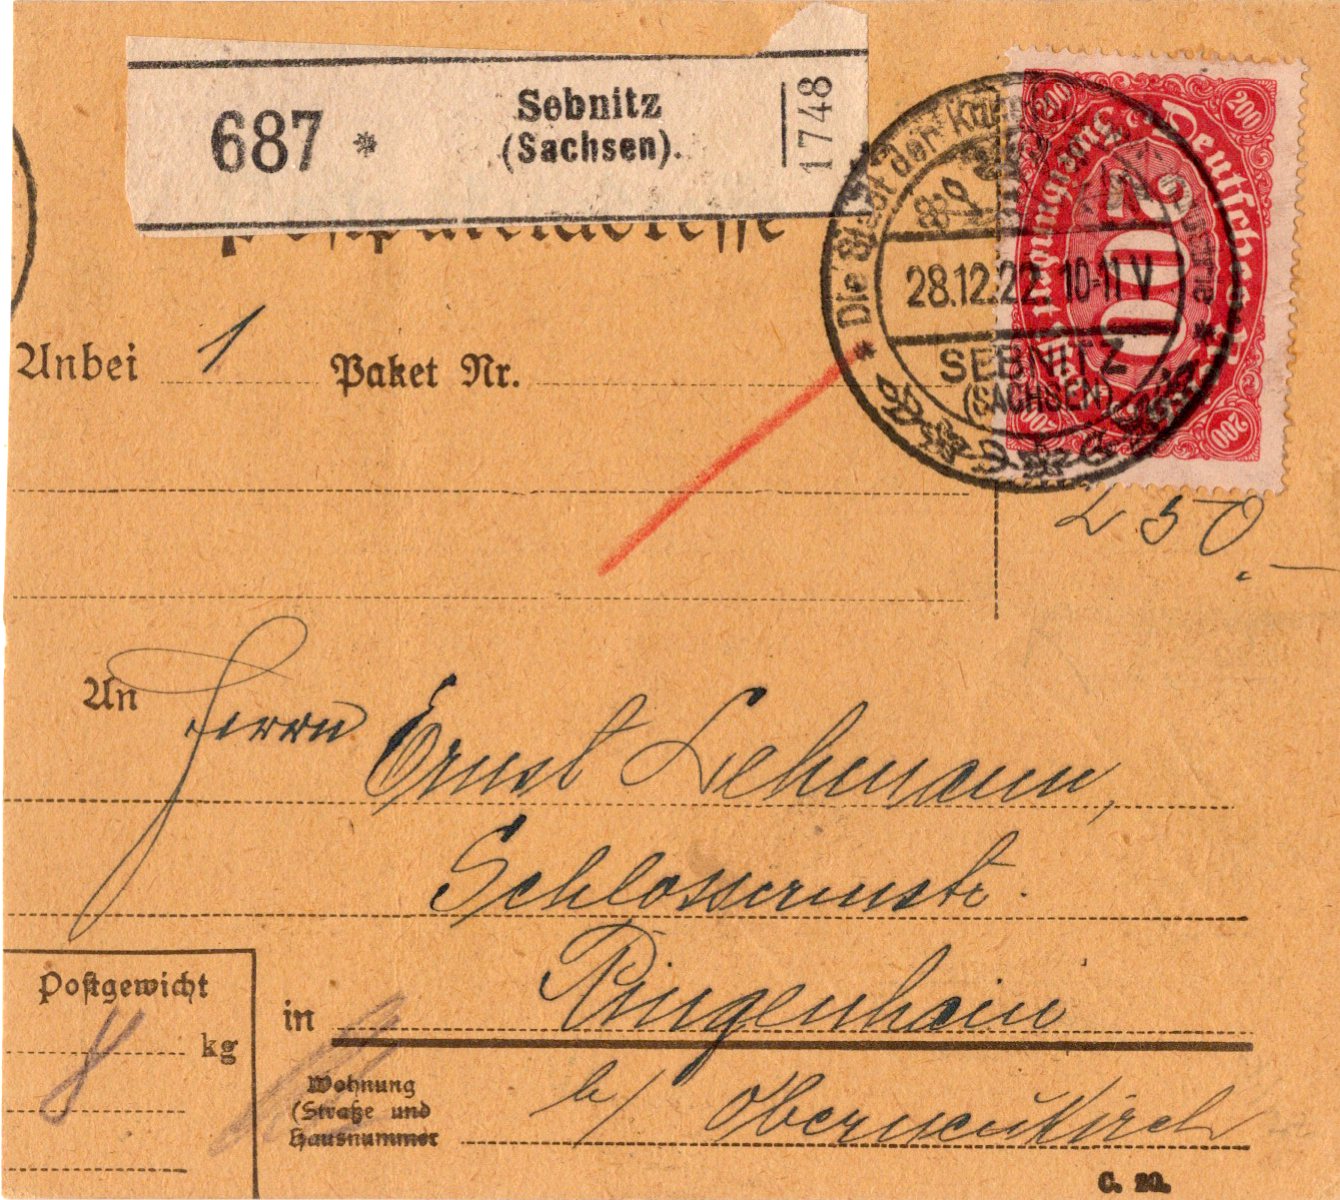 687 * Sebnitz
(Sachsen).
1748
Postpaketadresse
Anbei 1 Paket Nr.
Die Stadt der Künstl. Blumen
28.12.22. 10-11 V
SEBNITZ
(SACHSEN)
200
200
200
200
Deutsches Reich
250.—
An Herrn Ernst Lehmann,
Schlossermstr.
Postgewicht
8 kg
in Ringenhain
Wohnung
(Straße und
Hausnummer
b/ Oberneukirch
C. 20.